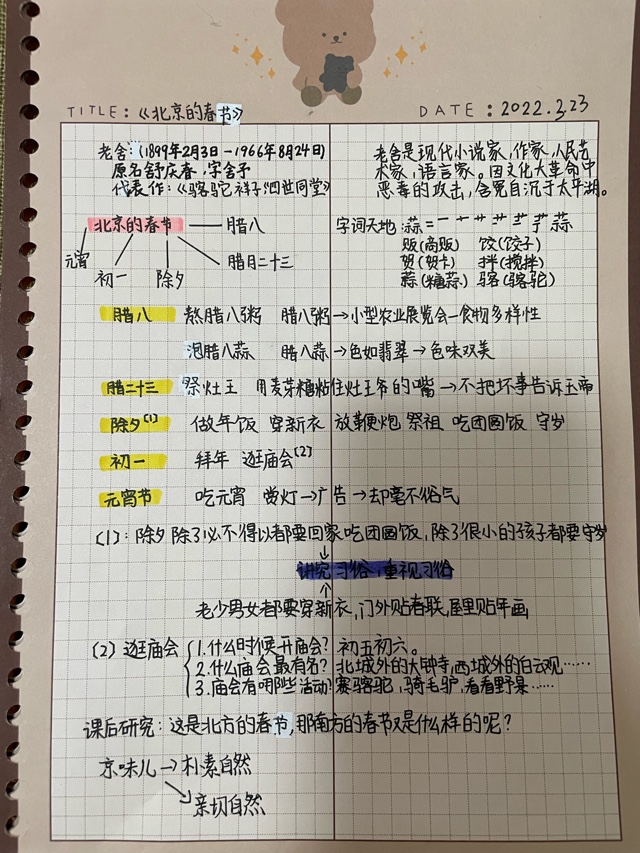 TITLE:《北京的春节》
DATE:2022.3.23
老舍:(1899年2月3日-1966年8月24日)
原名舒庆春,字舍予
代表作:《骆驼祥子》《四世同堂》
老舍是现代小说家,作家,人民艺
术家,语言家。因文化大革命中
恶毒的攻击,含冤自沉于太平湖。
北京的春节
腊八
腊月二十三
除夕
初一
元宵
字词天地:蒜=
贩(商贩) 饺(饺子)
贺(贺卡) 拌(搅拌)
蒜(糖蒜) 骆(骆驼)
腊八 熬腊八粥 腊八粥→小型农业展览会—食物多样性
泡腊八蒜 腊八蒜→色如翡翠→色味双美
腊二十三 祭灶王 用麦芽糖粘住灶王爷的嘴→不把坏事告诉玉帝
除夕(1) 做年饭 穿新衣 放鞭炮 祭祖 吃团圆饭 守岁
初一 拜年 逛庙会(2)
元宵节 吃元宵 赏灯→广告→却毫不俗气
(1):除夕除了必不得以都要回家吃团圆饭,除了很小的孩子都要守岁
讲究习俗,重视习俗
老少男女都要穿新衣,门外贴春联,屋里贴年画
(2)逛庙会
1.什么时候开庙会?初五初六。
2.什么庙会最有名?北城外的大钟寺,西城外的白云观……
3.庙会有哪些活动?赛骆驼,骑毛驴,看看野景……
课后研究:这是北方的春节,那南方的春节又是什么样的呢?
京味儿→朴素自然
亲切自然